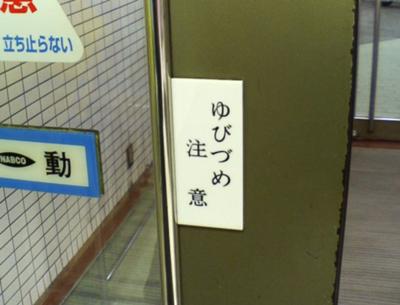 急
立ち止らない
NABCO
動
ゆびづめ
注意